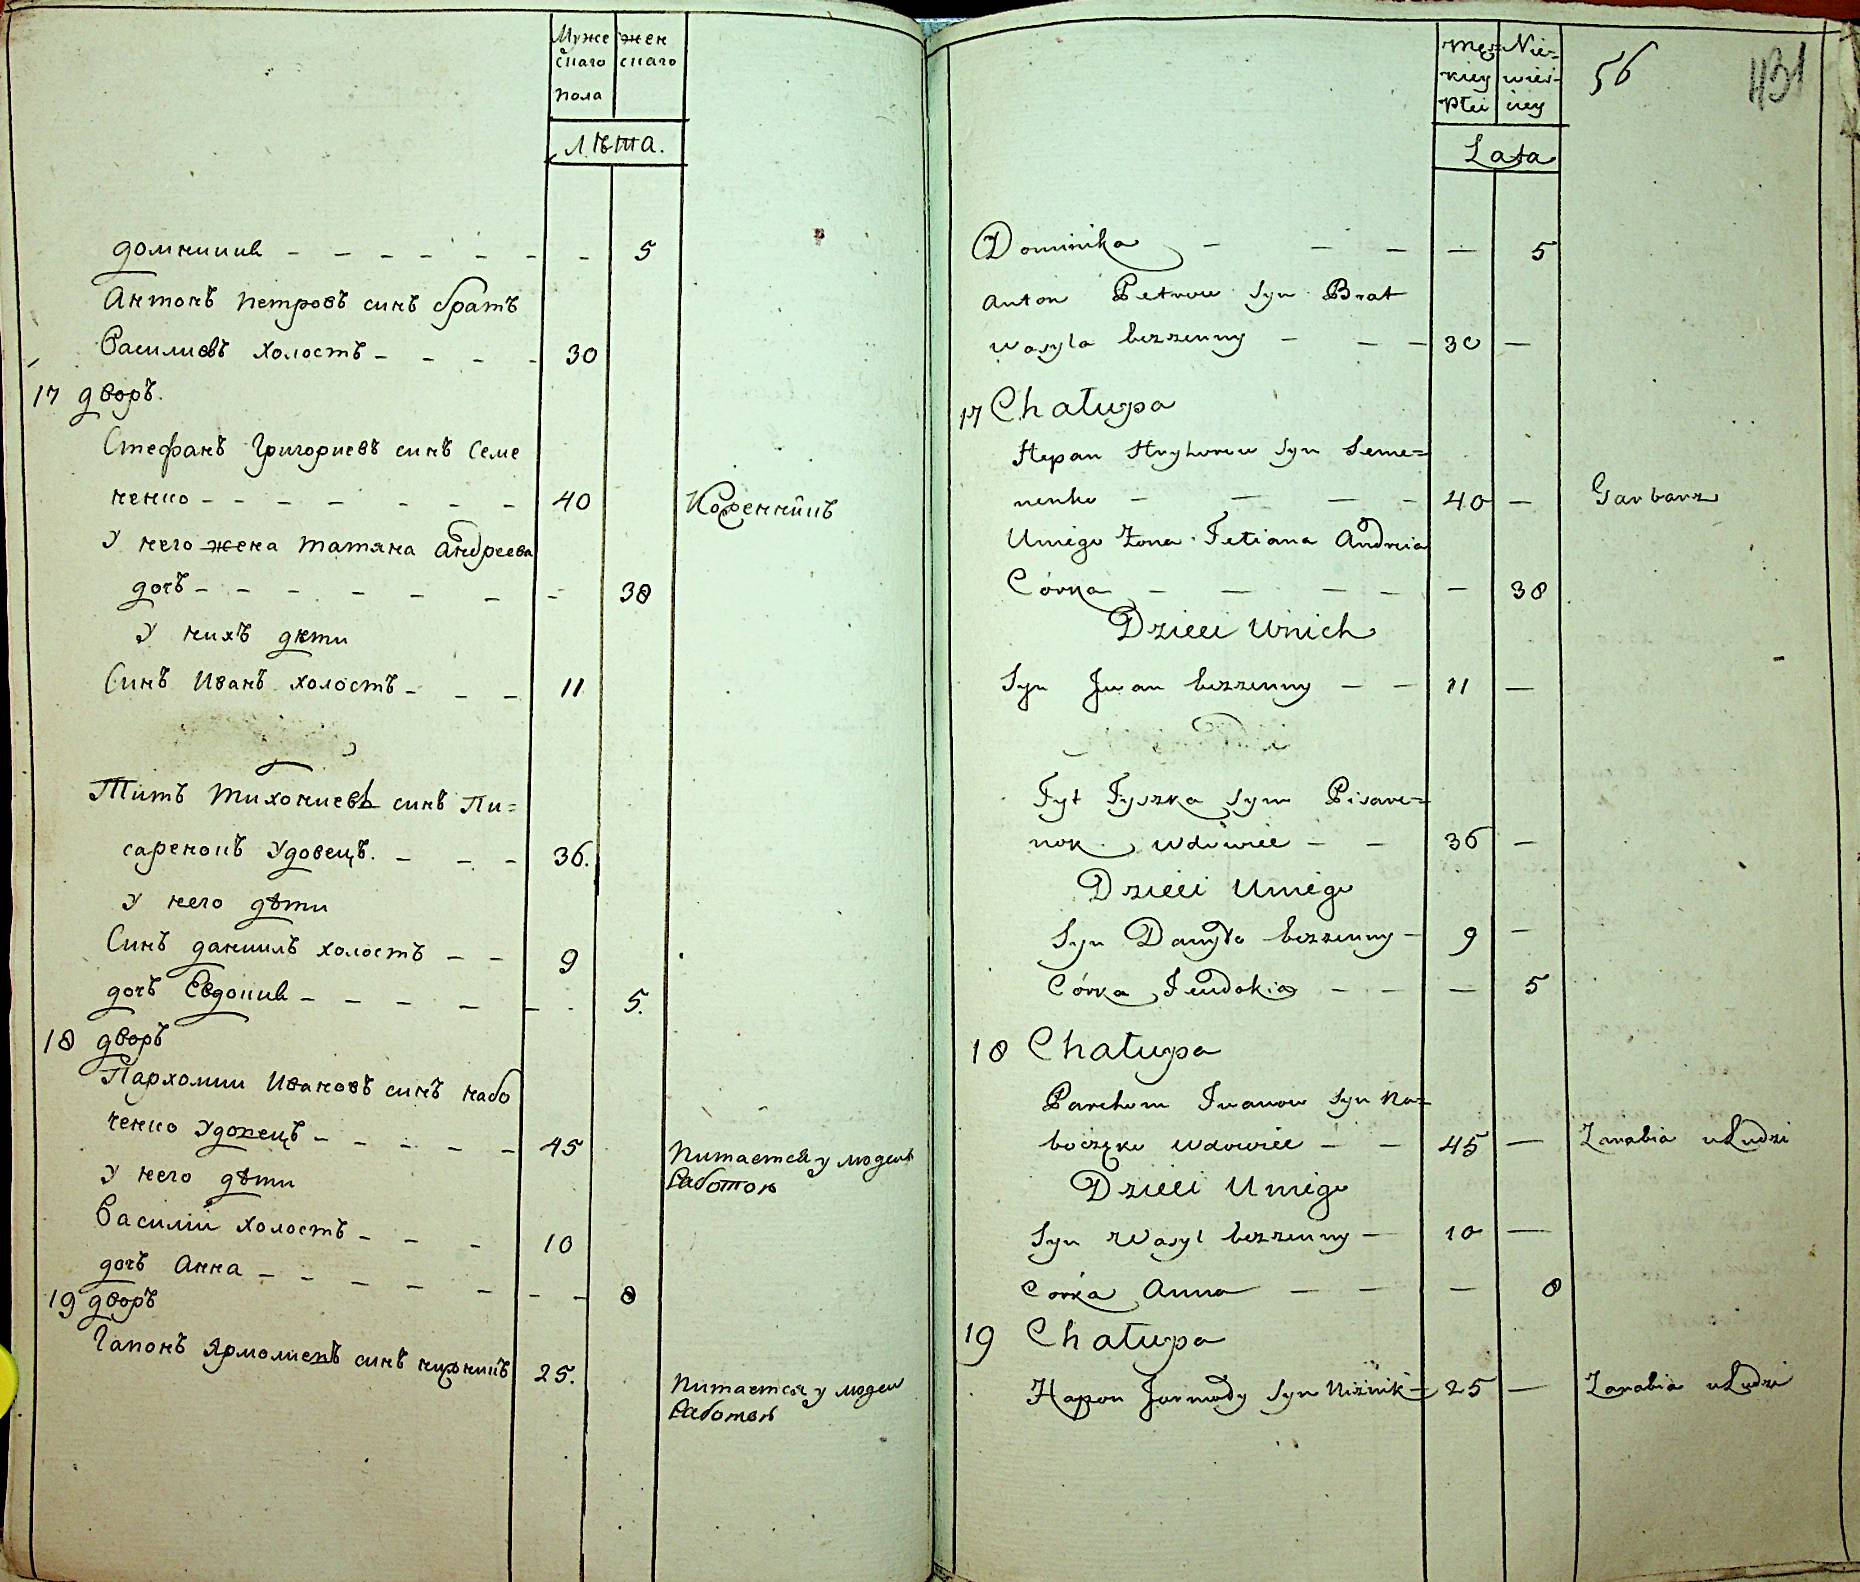 Муже жен
скаго скаго
пола
лѣта.
домникия 5
Антонъ Петровъ синъ братъ
Василиевъ холостъ 30
17 дворъ.
Стефанъ Григориевъ синъ Семе
ненко 40 Коженникъ
У него жена Татяна Андреева
дочъ 38
У нихъ дѣти
Синъ Иванъ холостъ 11
Титъ Тихониевъ синъ Пи=
саренокъ удовецъ. 36.
У него дѣти
Синъ даниилъ холостъ 9
дочъ Евдокия 5.
18 дворъ
Пархомии Ивановъ синъ набо
ченко удовецъ 45 Питается у людей
работою
У него дѣти
Василий холостъ 10
дочъ Анна 8
19 дворъ
Гапонъ Ярмолиевъ синъ нижникъ 25. Питается у людей
работою
męz= Nie=
kiey wieś=
Płci ciey
56
1131
Lata
Dominika 5
Anton Petrow Syn Brat
Wasyla bezzenny 30
17 Chałupa
Stepan Hryhorow Syn Seme=
nenko 40 Garbarz
Uniego Zona Tetiana Andreia
Córka 38
Dzieci Unich
Syn Jwan bezzenny 11
Tyt Tyszka Syn Pisare=
nok wdowiec 36
Dzieci Uniego
Syn Danyło bezzenny 9
Córka Jewdokia 5
18 Chałupa
Parchom Jwanow Syn Na=
boczęko wdowiec 45 Zarabia u Ludzi
Dzieci Uniego
Syn Wasyl bezzenny 10
Córka Anna 8
19 Chałupa
Hapon Jarmoły Syn Niznik 25 Zarabia u Ludzi